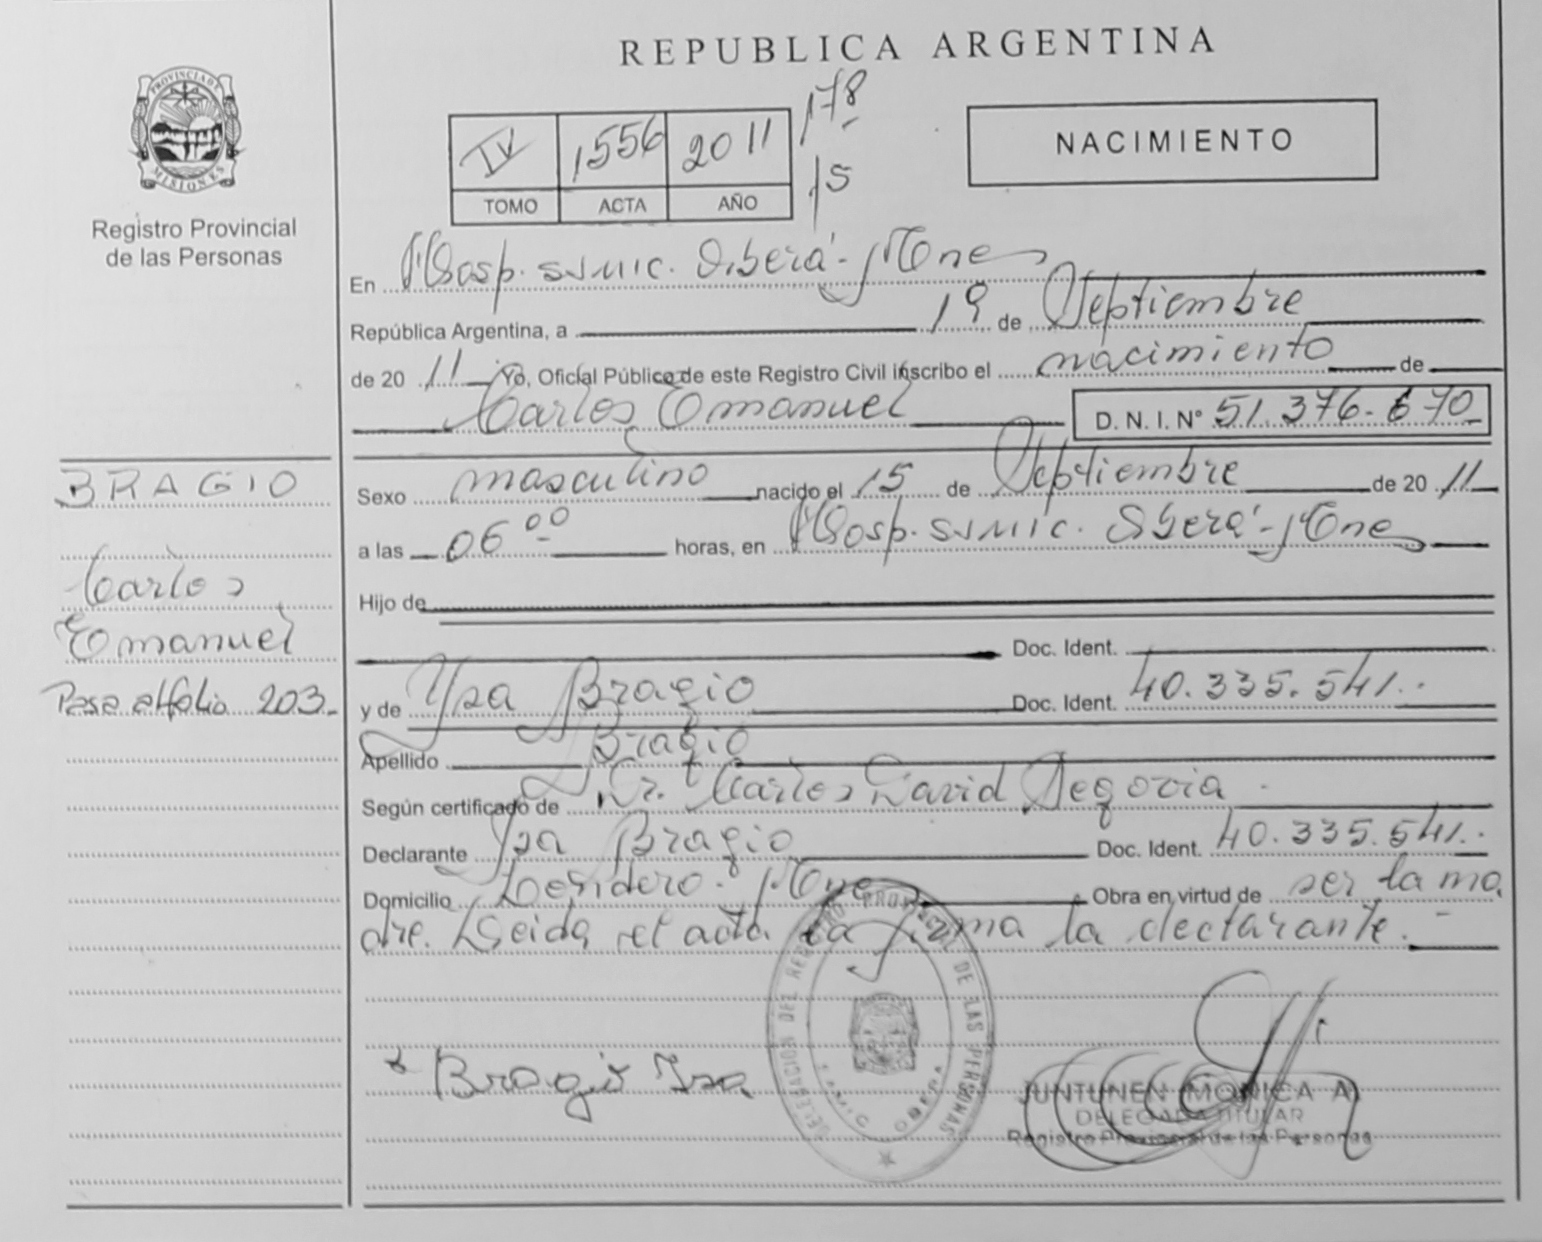 REPUBLICA ARGENTINA
PROVINCIA DE MISIONES
Registro Provincial
de las Personas
IV 1556 2011
TOMO ACTA AÑO
178
15
NACIMIENTO
En Hosp. SAMIC. Oberá - Mnes
República Argentina, a 19 de Septiembre
de 20 11 Yo, Oficial Público de este Registro Civil inscribo el nacimiento de
Carlos Emanuel D. N. I. N° 51.376.670
BRAGIO
Carlos
Emanuel
Pase al folio 203.-
Sexo masculino nacido el 15 de Septiembre de 20 11
a las 06 00 horas, en Hosp. SAMIC. Oberá - Mnes
Hijo de
Doc. Ident.
y de Ysa Bragio Doc. Ident. 40.335.541.-
Apellido Bragio
Según certificado de Dr. Carlos David Segovia.
Declarante Ysa Bragio Doc. Ident. 40.335.541.-
Domicilio Mnes Obra en virtud de ser la ma
dre. Leida el acta la firma la declarante. -
Bragio Isa
DELEGACION DEL REGISTRO PROVINCIAL DE LAS PERSONAS
SAMIC OBERA
JUNTUNEN MONICA A.
DELEGADA TITULAR
Registro Provincial de las Personas